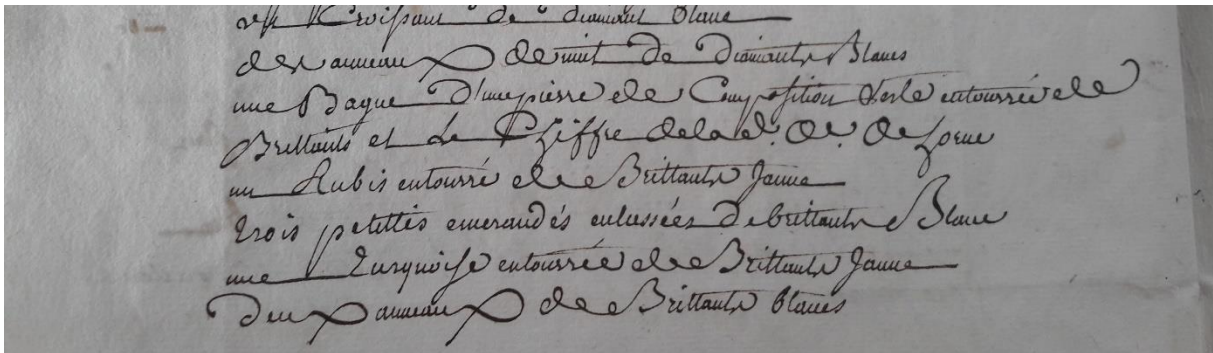 un Croissant de diamant blanc
deux anneaux de nuit de Diamants Blancs
une Bague D'une pierre de Composition Verte entourrée de
Brillants et Le Chiffre de la d. De. De Lorne
un Rubis entourré de Brillants Jaune
trois petittes emeraudés enlassées de brillants Blanc
une Turquoise entourrée de Brillants Jaune
Deux anneaux de Brillants blancs